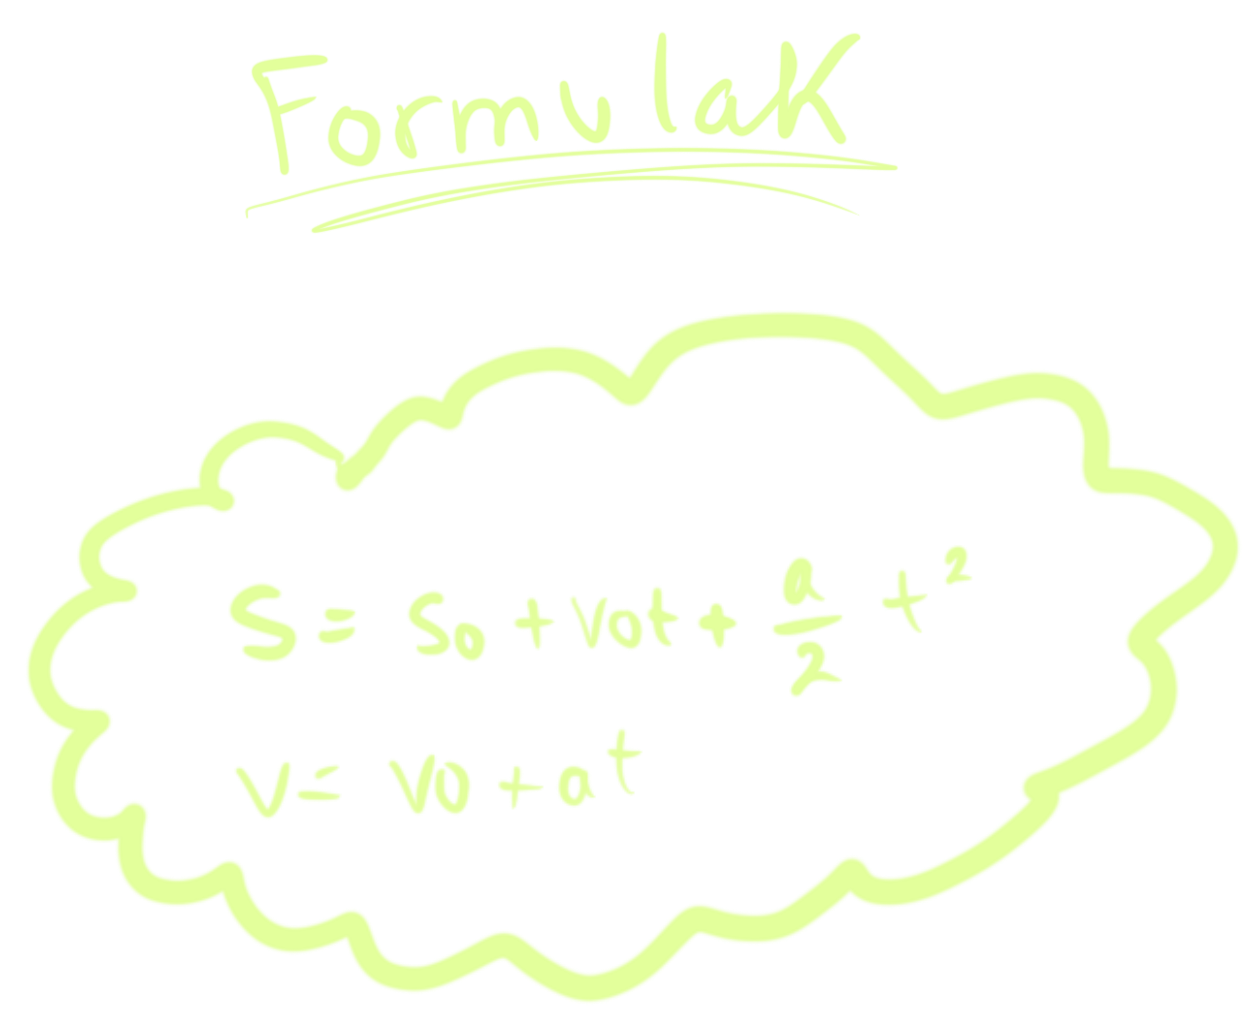 Formulak
S = S₀ + V₀t + a/2 t²
V = V₀ + at